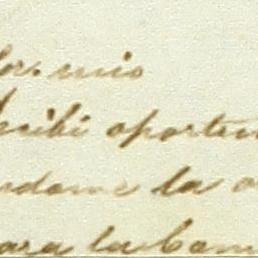 or. mio
ecibi oportun
ndome la o
para la Cam